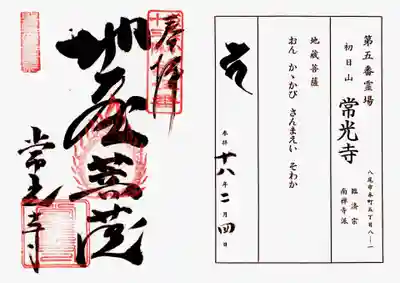 第五番霊場
初日山
常光寺
八尾市本町五丁目八ー一
臨済宗
南禅寺派
地蔵菩薩
おん かゝかび さんまえい そわか
参拝 十八年二月四日
奉拝
地蔵菩薩
常光寺